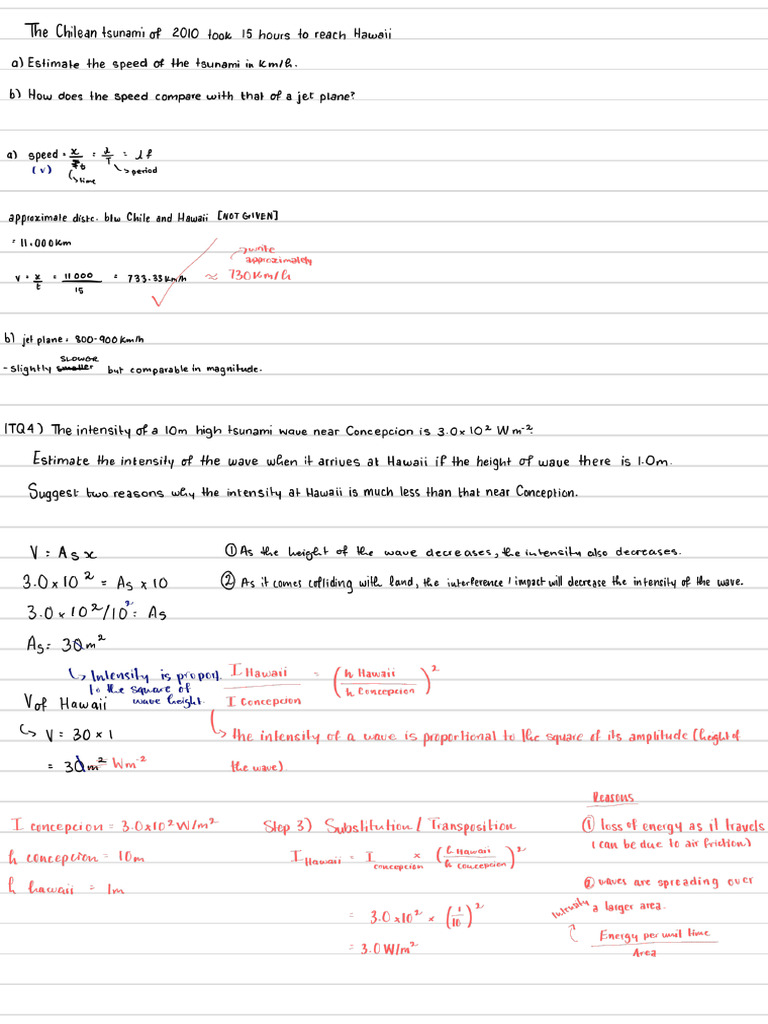 The Chilean tsunami of 2010 took 15 hours to reach Hawaii
a) Estimate the speed of the tsunami in km/h.
b) How does the speed compare with that of a jet plane?
a) speed = x/t = λ/T = λf
(v)
↳ time
↳ period
approximate distc. btw Chile and Hawaii [NOT GIVEN]
= 11,000km
↳ write
approximately
v = x/t = 11000/15 = 733.33 km/h ≈ 730 km/h
b) jet plane: 800-900 km/h
- slightly smaller SLOWER but comparable in magnitude.
ITQ4) The intensity of a 10m high tsunami wave near Concepcion is 3.0 × 10² W m⁻².
Estimate the intensity of the wave when it arrives at Hawaii if the height of wave there is 1.0m.
Suggest two reasons why the intensity at Hawaii is much less than that near Conception.
V = As x
3.0 × 10² = As × 10
3.0 × 10²/10 = As
As = 30m²
① As the height of the wave decreases, the intensity also decreases.
② As it comes colliding with land, the interference / impact will decrease the intensity of the wave.
↳ Intensity is proport.
to the square of
wave height.
I Hawaii / I Concepcion = (h Hawaii / h Concepcion)²
↳ the intensity of a wave is proportional to the square of its amplitude (height of
the wave).
V of Hawaii
↳ V = 30 × 1
= 30m² = Wm⁻²
I concepcion = 3.0×10² W/m²
h concepcion = 10m
h hawaii = 1m
Step 3) Substitution / Transposition
I Hawaii = I concepcion × (h Hawaii / h concepcion)²
= 3.0 × 10² × (1/10)²
= 3.0 W/m²
Reasons
① loss of energy as it travels
(can be due to air friction)
② waves are spreading over
a larger area.
Intensity
Energy per unit time / Area